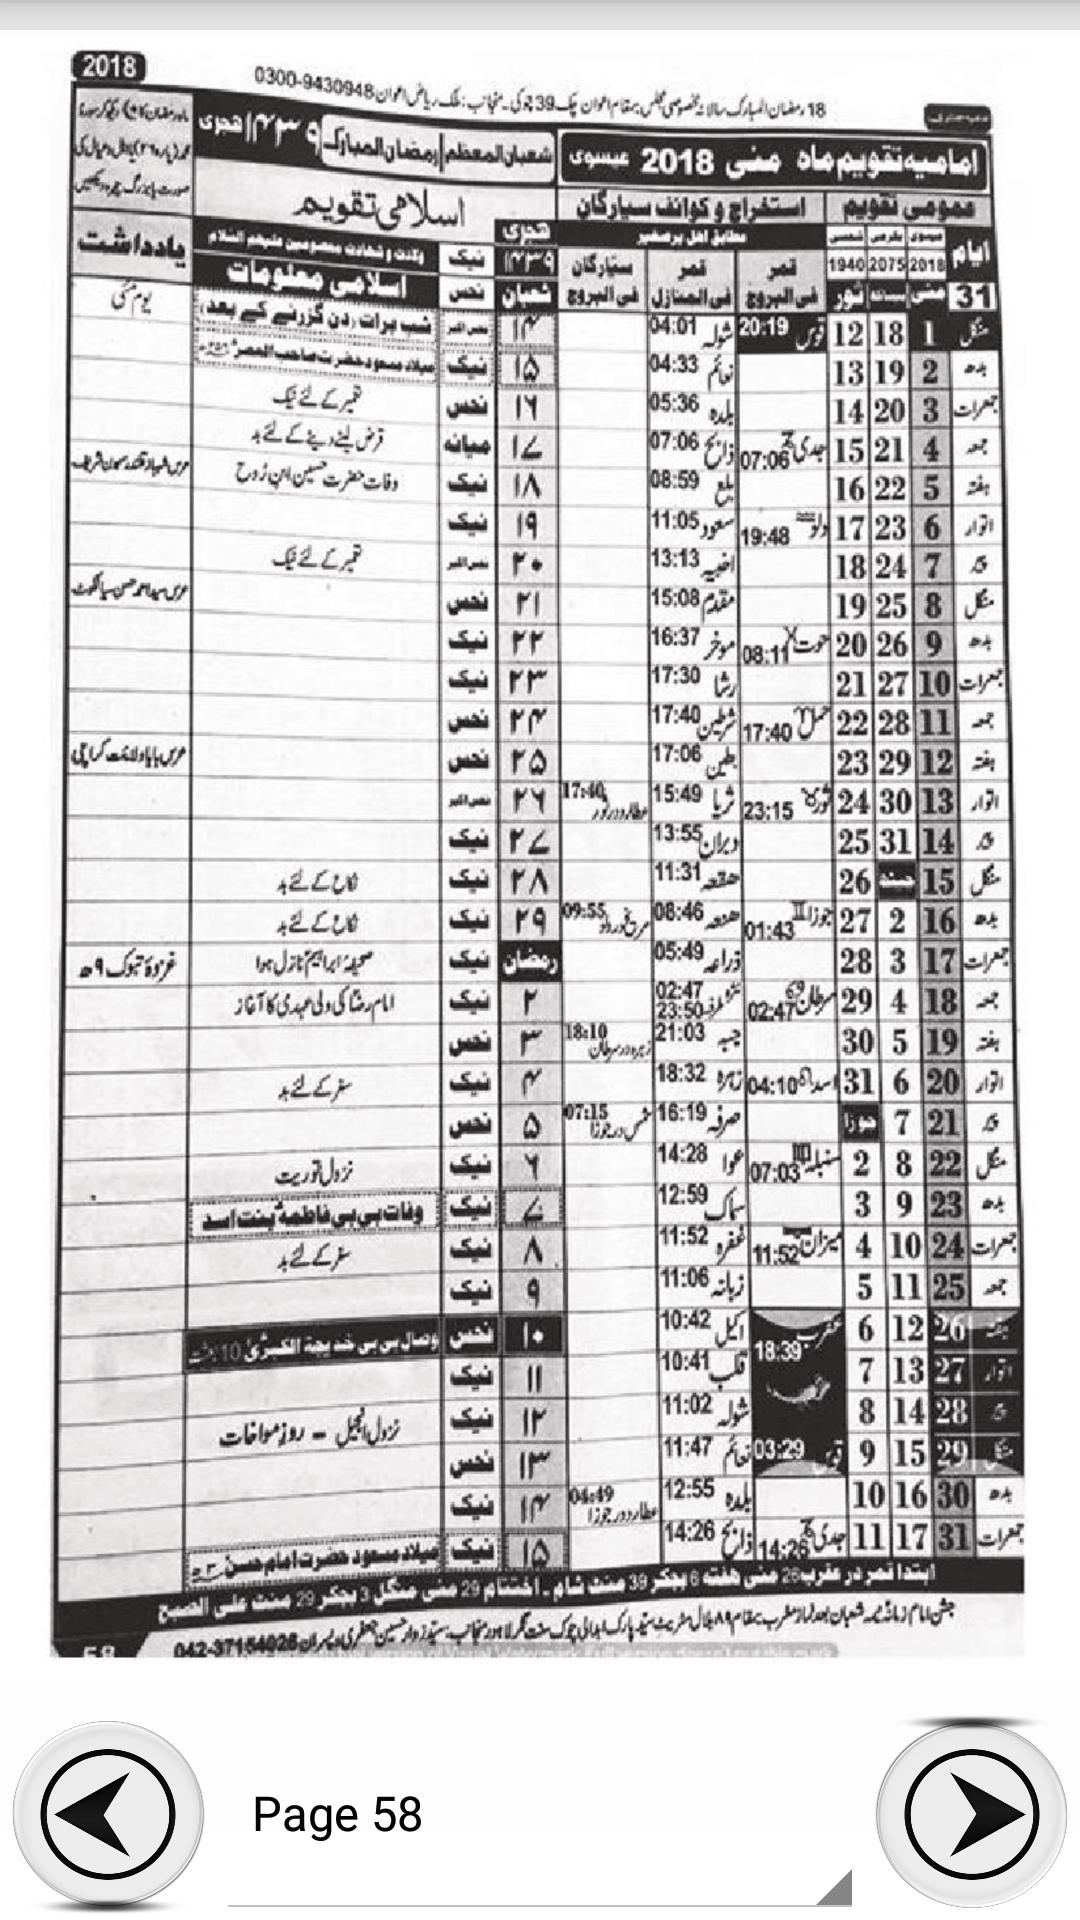 2018
18 رمضان المبارک سالانہ خصوصی مجلس بمقام اعوان چک 39 چوکی۔ منجانب: ملک ریاض اعوان 0300-9430948
امامیہ تقویم ماہ مئی 2018 عیسوی
شعبان المعظم رمضان المبارک ۱۴۳۹ ہجری
عمومی تقویم استخراج و کوائف سیارگان اسلامی تقویم
مطابق اہل برصغیر ہجری ولادت و شہادت معصومین علیہم السلام یادداشت
ایام عیسوی بکرمی شمسی قمر قمر سیارگان ۱۴۳۹ نیک اسلامی معلومات
2018 2075 1940 فی البروج فی المنازل فی البروج شعبان نحس
31 مئی ثور
منگل 1 18 12 قوس 20:19 شولہ 04:01 ۱۴ نحس اکبر شب برات (دن گزرنے کے بعد) یوم مئی
بدھ 2 19 13 نعائم 04:33 ۱۵ نیک میلاد مسعود حضرت صاحب العصر
جمعرات 3 20 14 بلدہ 05:36 ۱۶ نحس تعمیر کے لئے نیک
جمعہ 4 21 15 جدی 07:06 ذابح 07:06 ۱۷ میانہ قرض لینے دینے کے لئے بد
ہفتہ 5 22 16 بلع 08:59 ۱۸ نیک وفات حضرت حسین ابن رُوح
اتوار 6 23 17 دلو 19:48 سعود 11:05 ۱۹ نیک
پیر 7 24 18 اخبیہ 13:13 ۲۰ نحس اکبر تعمیر کے لئے نیک
منگل 8 25 19 مقدم 15:08 ۲۱ نحس
بدھ 9 26 20 حوت 08:11 موخر 16:37 ۲۲ نیک
جمعرات 10 27 21 رشا 17:30 ۲۳ نیک
جمعہ 11 28 22 حمل 17:40 شرطین 17:40 ۲۴ نحس
ہفتہ 12 29 23 بطین 17:06 ۲۵ نحس عرس بابا ولایت کراچی
اتوار 13 30 24 ثور 23:15 ثریا 15:49 عطارد در ثور 17:40 ۲۶ نحس اکبر
پیر 14 31 25 دبران 13:55 ۲۷ نیک
منگل 15 26 ھقعہ 11:31 ۲۸ نیک نکاح کے لئے بد
بدھ 16 2 27 جوزا 01:43 ھنعہ 08:46 09:55 ۲۹ نیک نکاح کے لئے بد
جمعرات 17 3 28 ذراعہ 05:49 رمضان نیک صحیفہ ابراہیم نازل ہوا غزوۂ تبوک ۹ھ
جمعہ 18 4 29 سرطان 02:47 02:47 23:50 ۲ نیک امام رضا کی ولی عہدی کا آغاز
ہفتہ 19 5 30 جبہ 21:03 زہرہ در سرطان 18:10 ۳ نحس
اتوار 20 6 31 اسد 04:10 زہرہ 18:32 ۴ نیک سفر کے لئے بد
پیر 21 7 جوزا صرفہ 16:19 شمس در جوزا 07:15 ۵ نحس
منگل 22 8 2 سنبلہ 07:03 عوا 14:28 ۶ نیک نزول توریت
بدھ 23 9 3 سماک 12:59 ۷ نیک وفات بی بی فاطمہ بنت اسد
جمعرات 24 10 4 میزان 11:52 غفرہ 11:52 ۸ نیک سفر کے لئے بد
جمعہ 25 11 5 زبانہ 11:06 ۹ نیک
ہفتہ 26 12 6 عقرب 18:39 اکیل 10:42 ۱۰ نحس وصال بی بی خدیجۃ الکبریٰ 10 بعثت
اتوار 27 13 7 قلب 10:41 ۱۱ نیک
پیر 28 14 8 شولہ 11:02 ۱۲ نیک نزول انجیل – روز مواخات
منگل 29 15 9 قوس 03:29 نعائم 11:47 ۱۳ نحس
بدھ 30 16 10 بلدہ 12:55 عطارد در جوزا 04:49 ۱۴ نیک
جمعرات 31 17 11 جدی 14:26 ذابح 14:26 ۱۵ نیک میلاد مسعود حضرت امام حسن
ابتدا قمر در عقرب 26 مئی ہفتہ 6 بجکر 39 منٹ شام ۔ اختتام 29 مئی منگل 3 بجکر 29 منٹ علی الصبح
042-37154026
58
Page 58